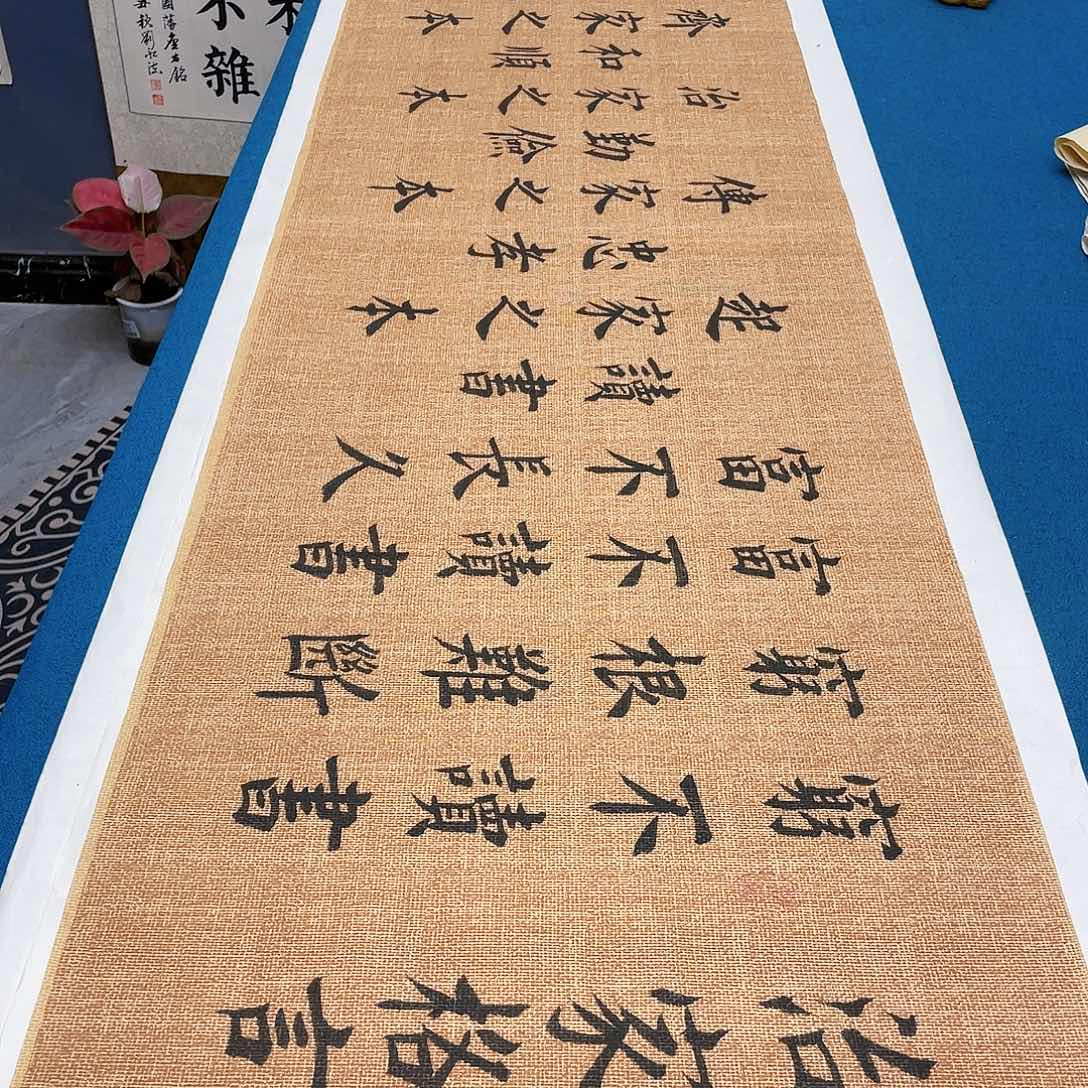 治家格言
窮不讀書
窮根難斷
富不讀書
富不長久
讀書
起家之本
忠孝
傳家之本
勤儉
治家之本
和順
齊家之本
不雜
國藩座右銘
秋劉